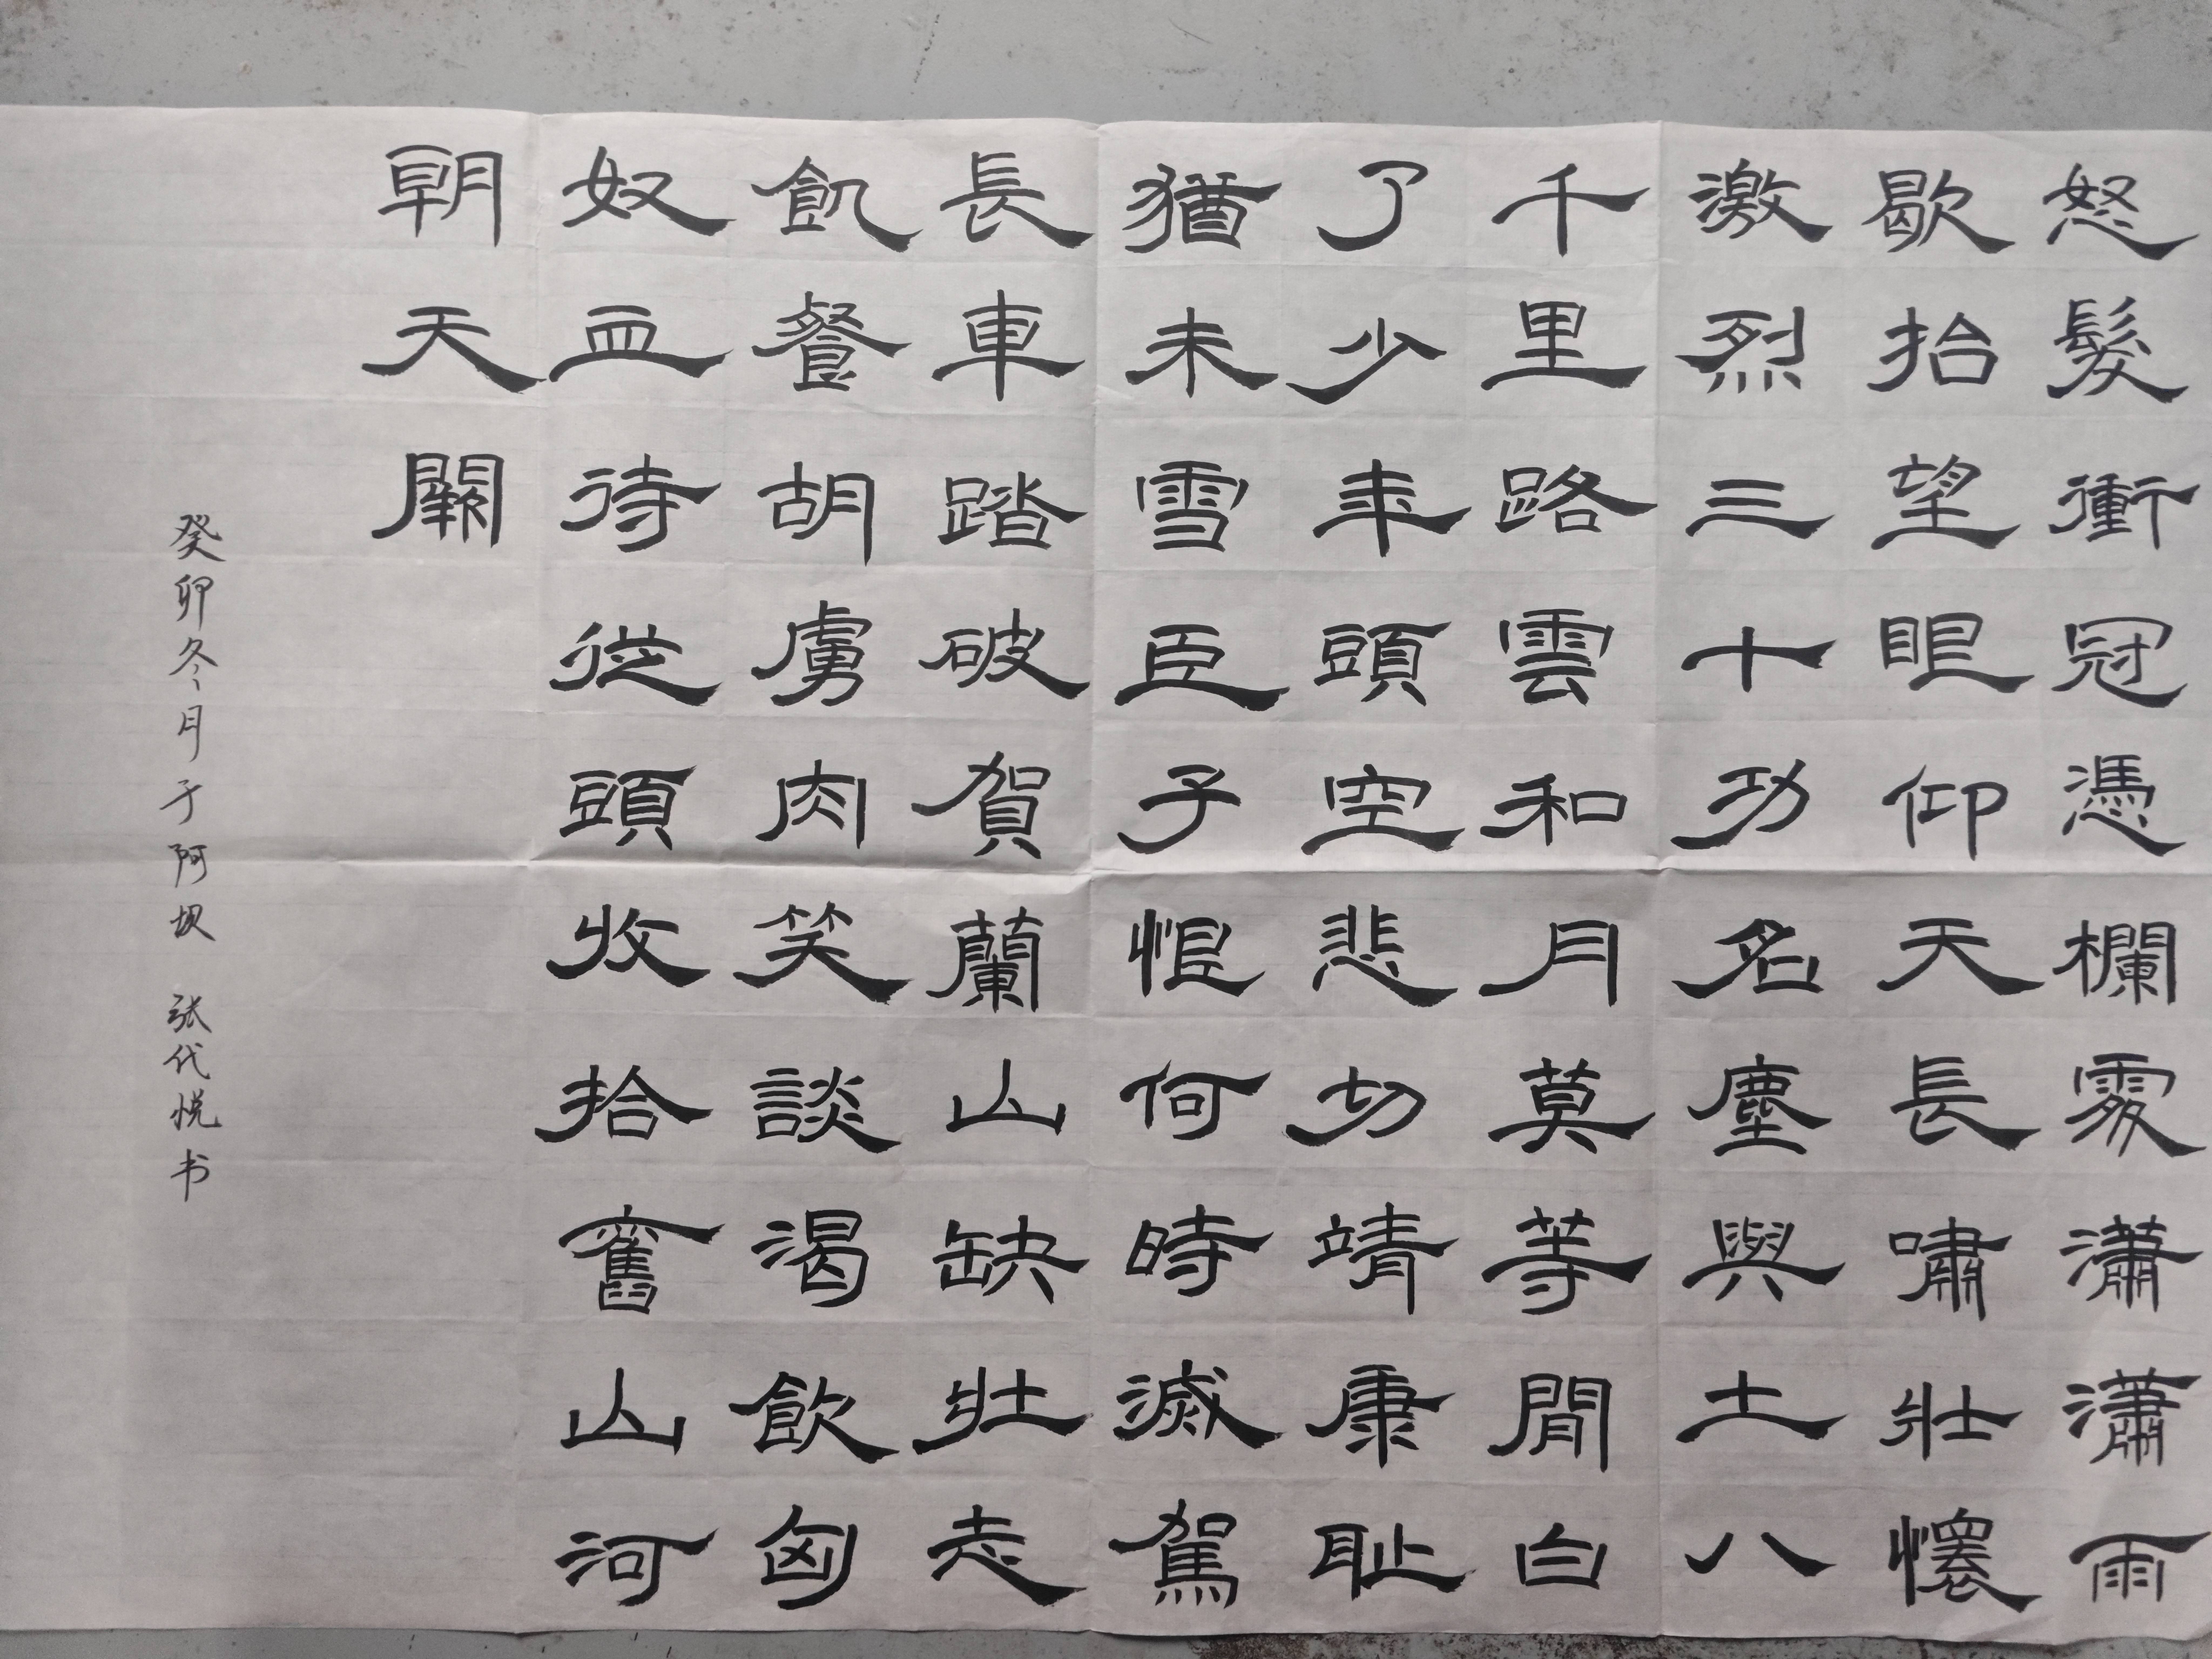 怒髮衝冠憑欄處瀟瀟雨
歇抬望眼仰天長嘯壯懷
激烈三十功名塵與土八
千里路雲和月莫等閒白
了少年頭空悲切靖康恥
猶未雪臣子恨何時滅駕
長車踏破賀蘭山缺壯志
飢餐胡虜肉笑談渴飲匈
奴血待從頭收拾舊山河
朝天闕
癸卯冬月于阿坝 张代悦书